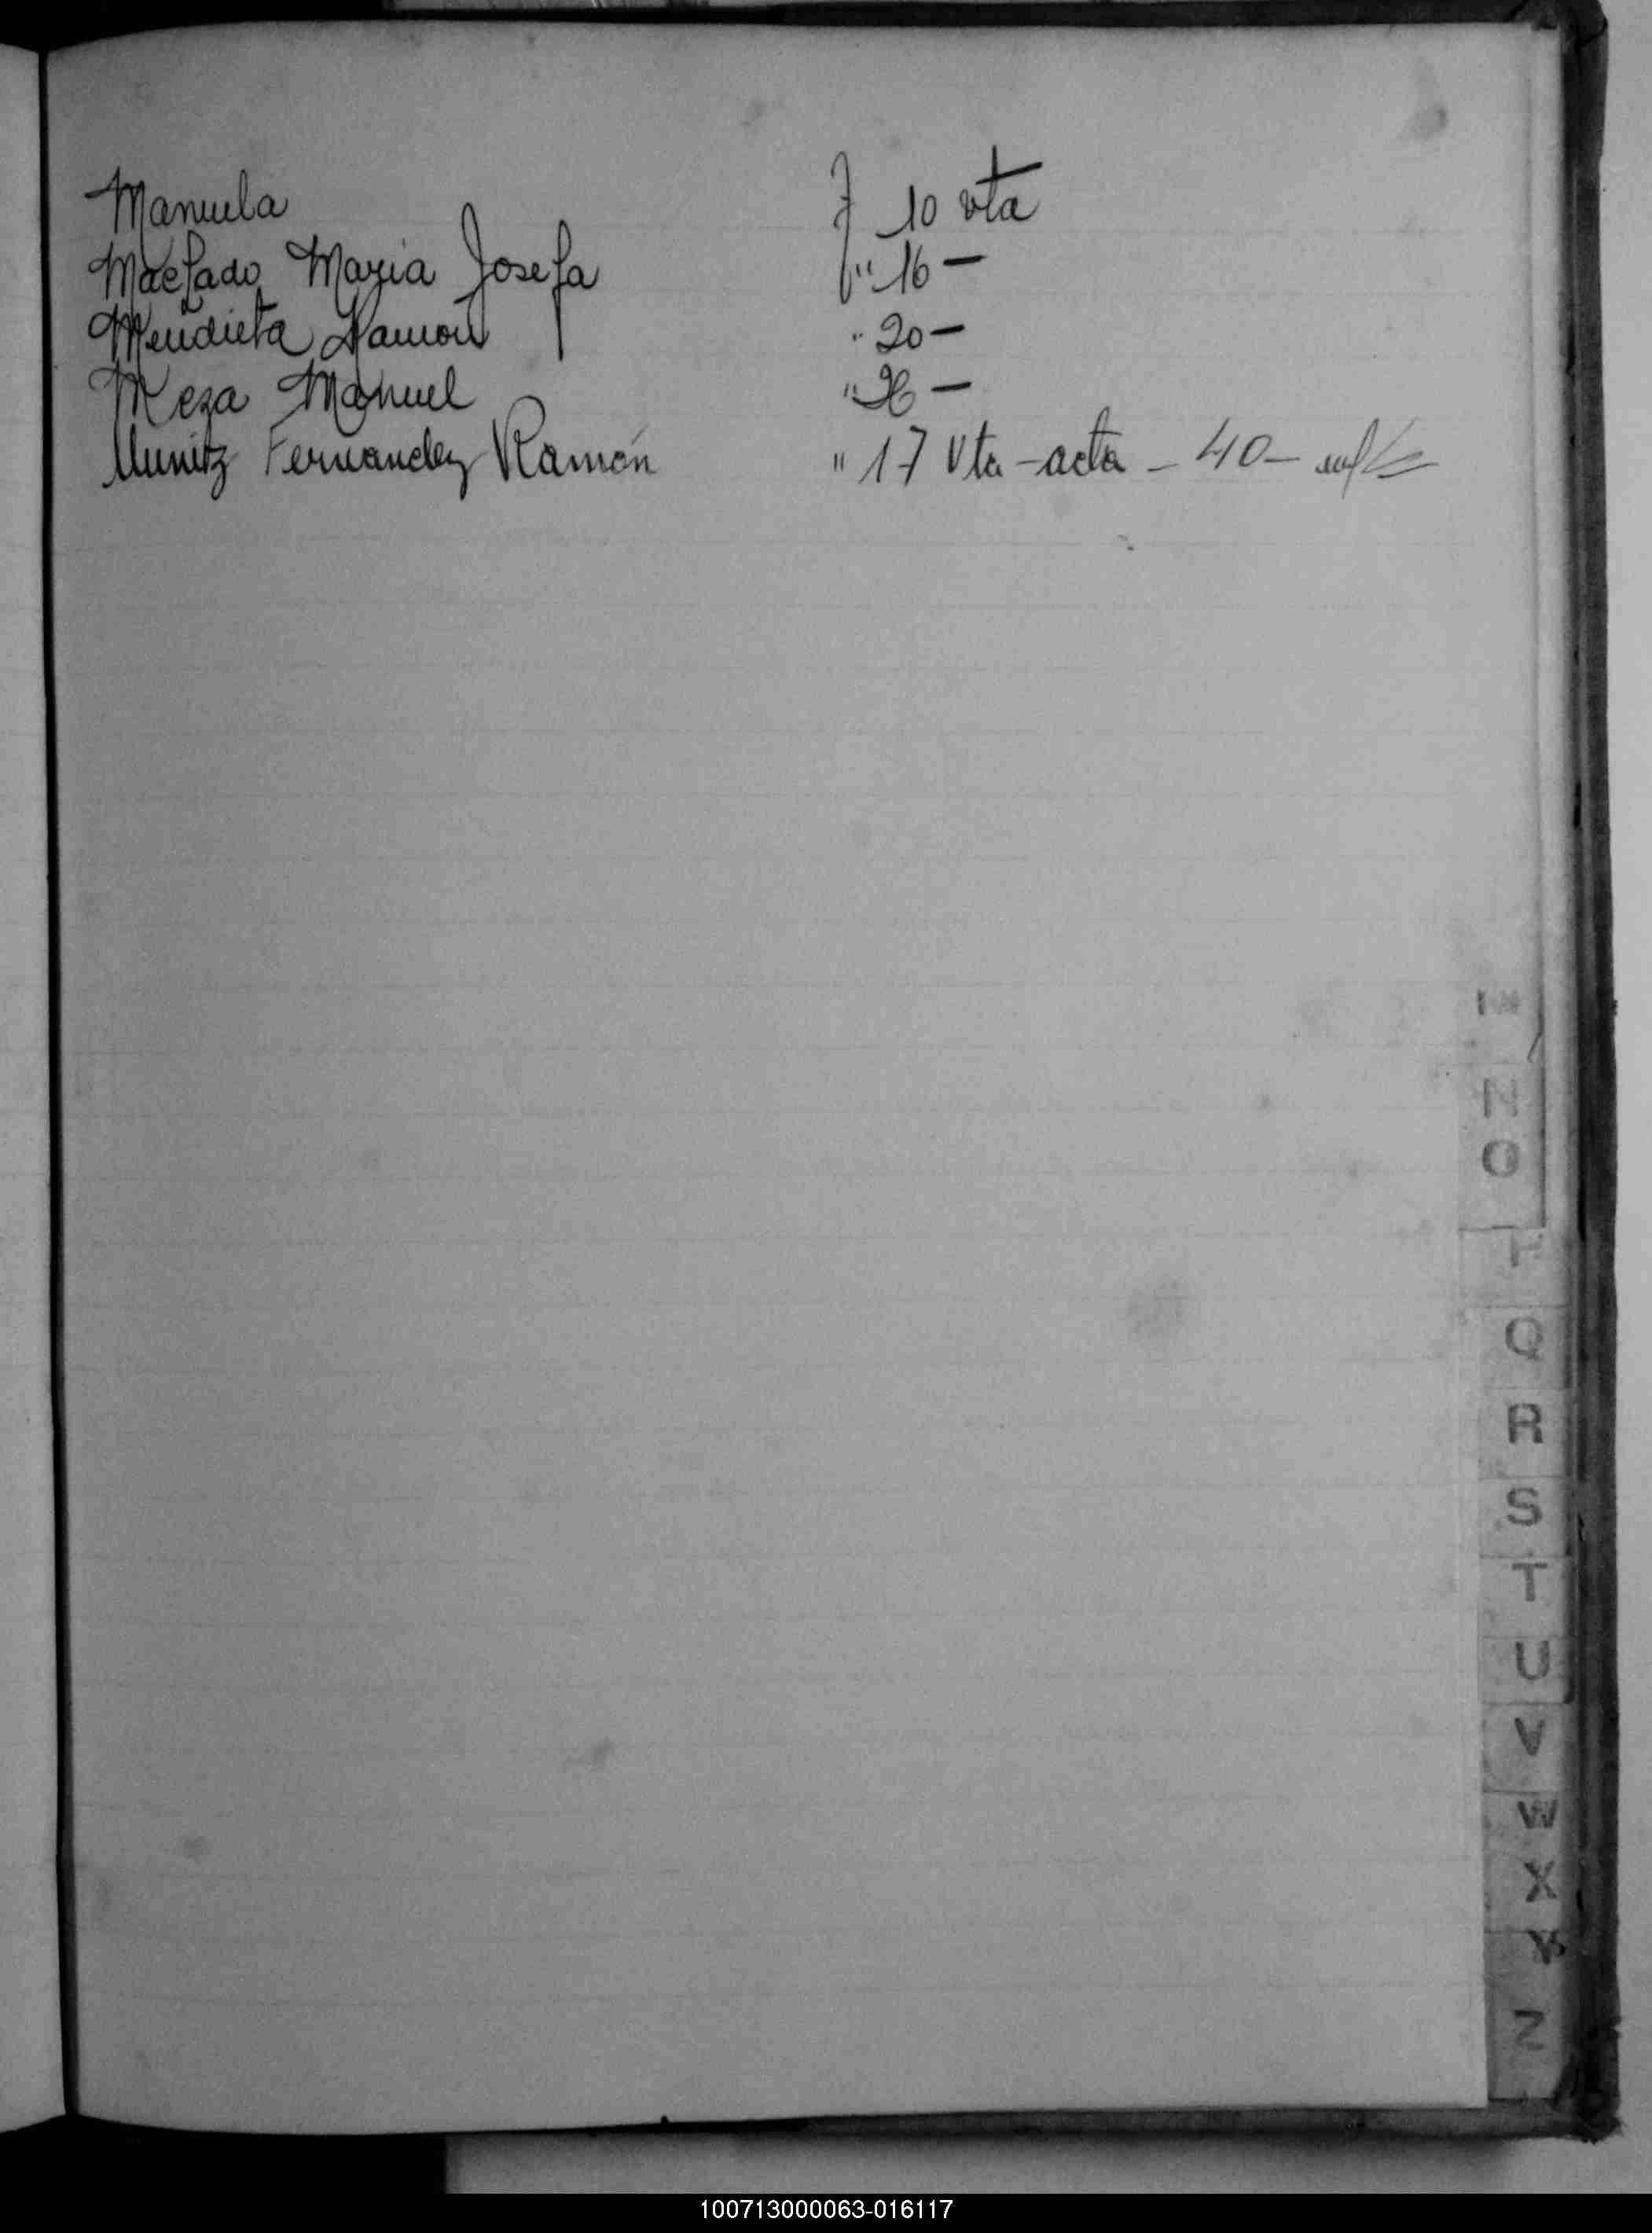 Manuela F 10 vta
Macfado Maria Josefa " 16 —
Mendieta Ramon " 20 —
Meza Manuel " 26 —
Muniz Fernandez Ramón " 17 Vta - acta - 40 -
M
N
O
P
Q
R
S
T
U
V
W
X
Y
Z
100713000063-016117